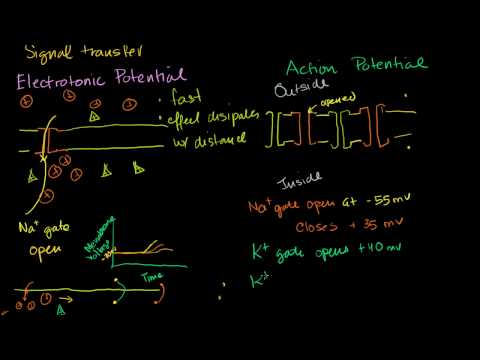 Signal transfer
Electrotonic Potential
• fast
• effect disipates
w/ distance
Na⁺ gate
open
Membrane
Voltage
Time
Action Potential
Outside
opened
Inside
Na⁺ gate open at -55mv
closes + 35 mv
K⁺ gate opens +40 mv
K⁺